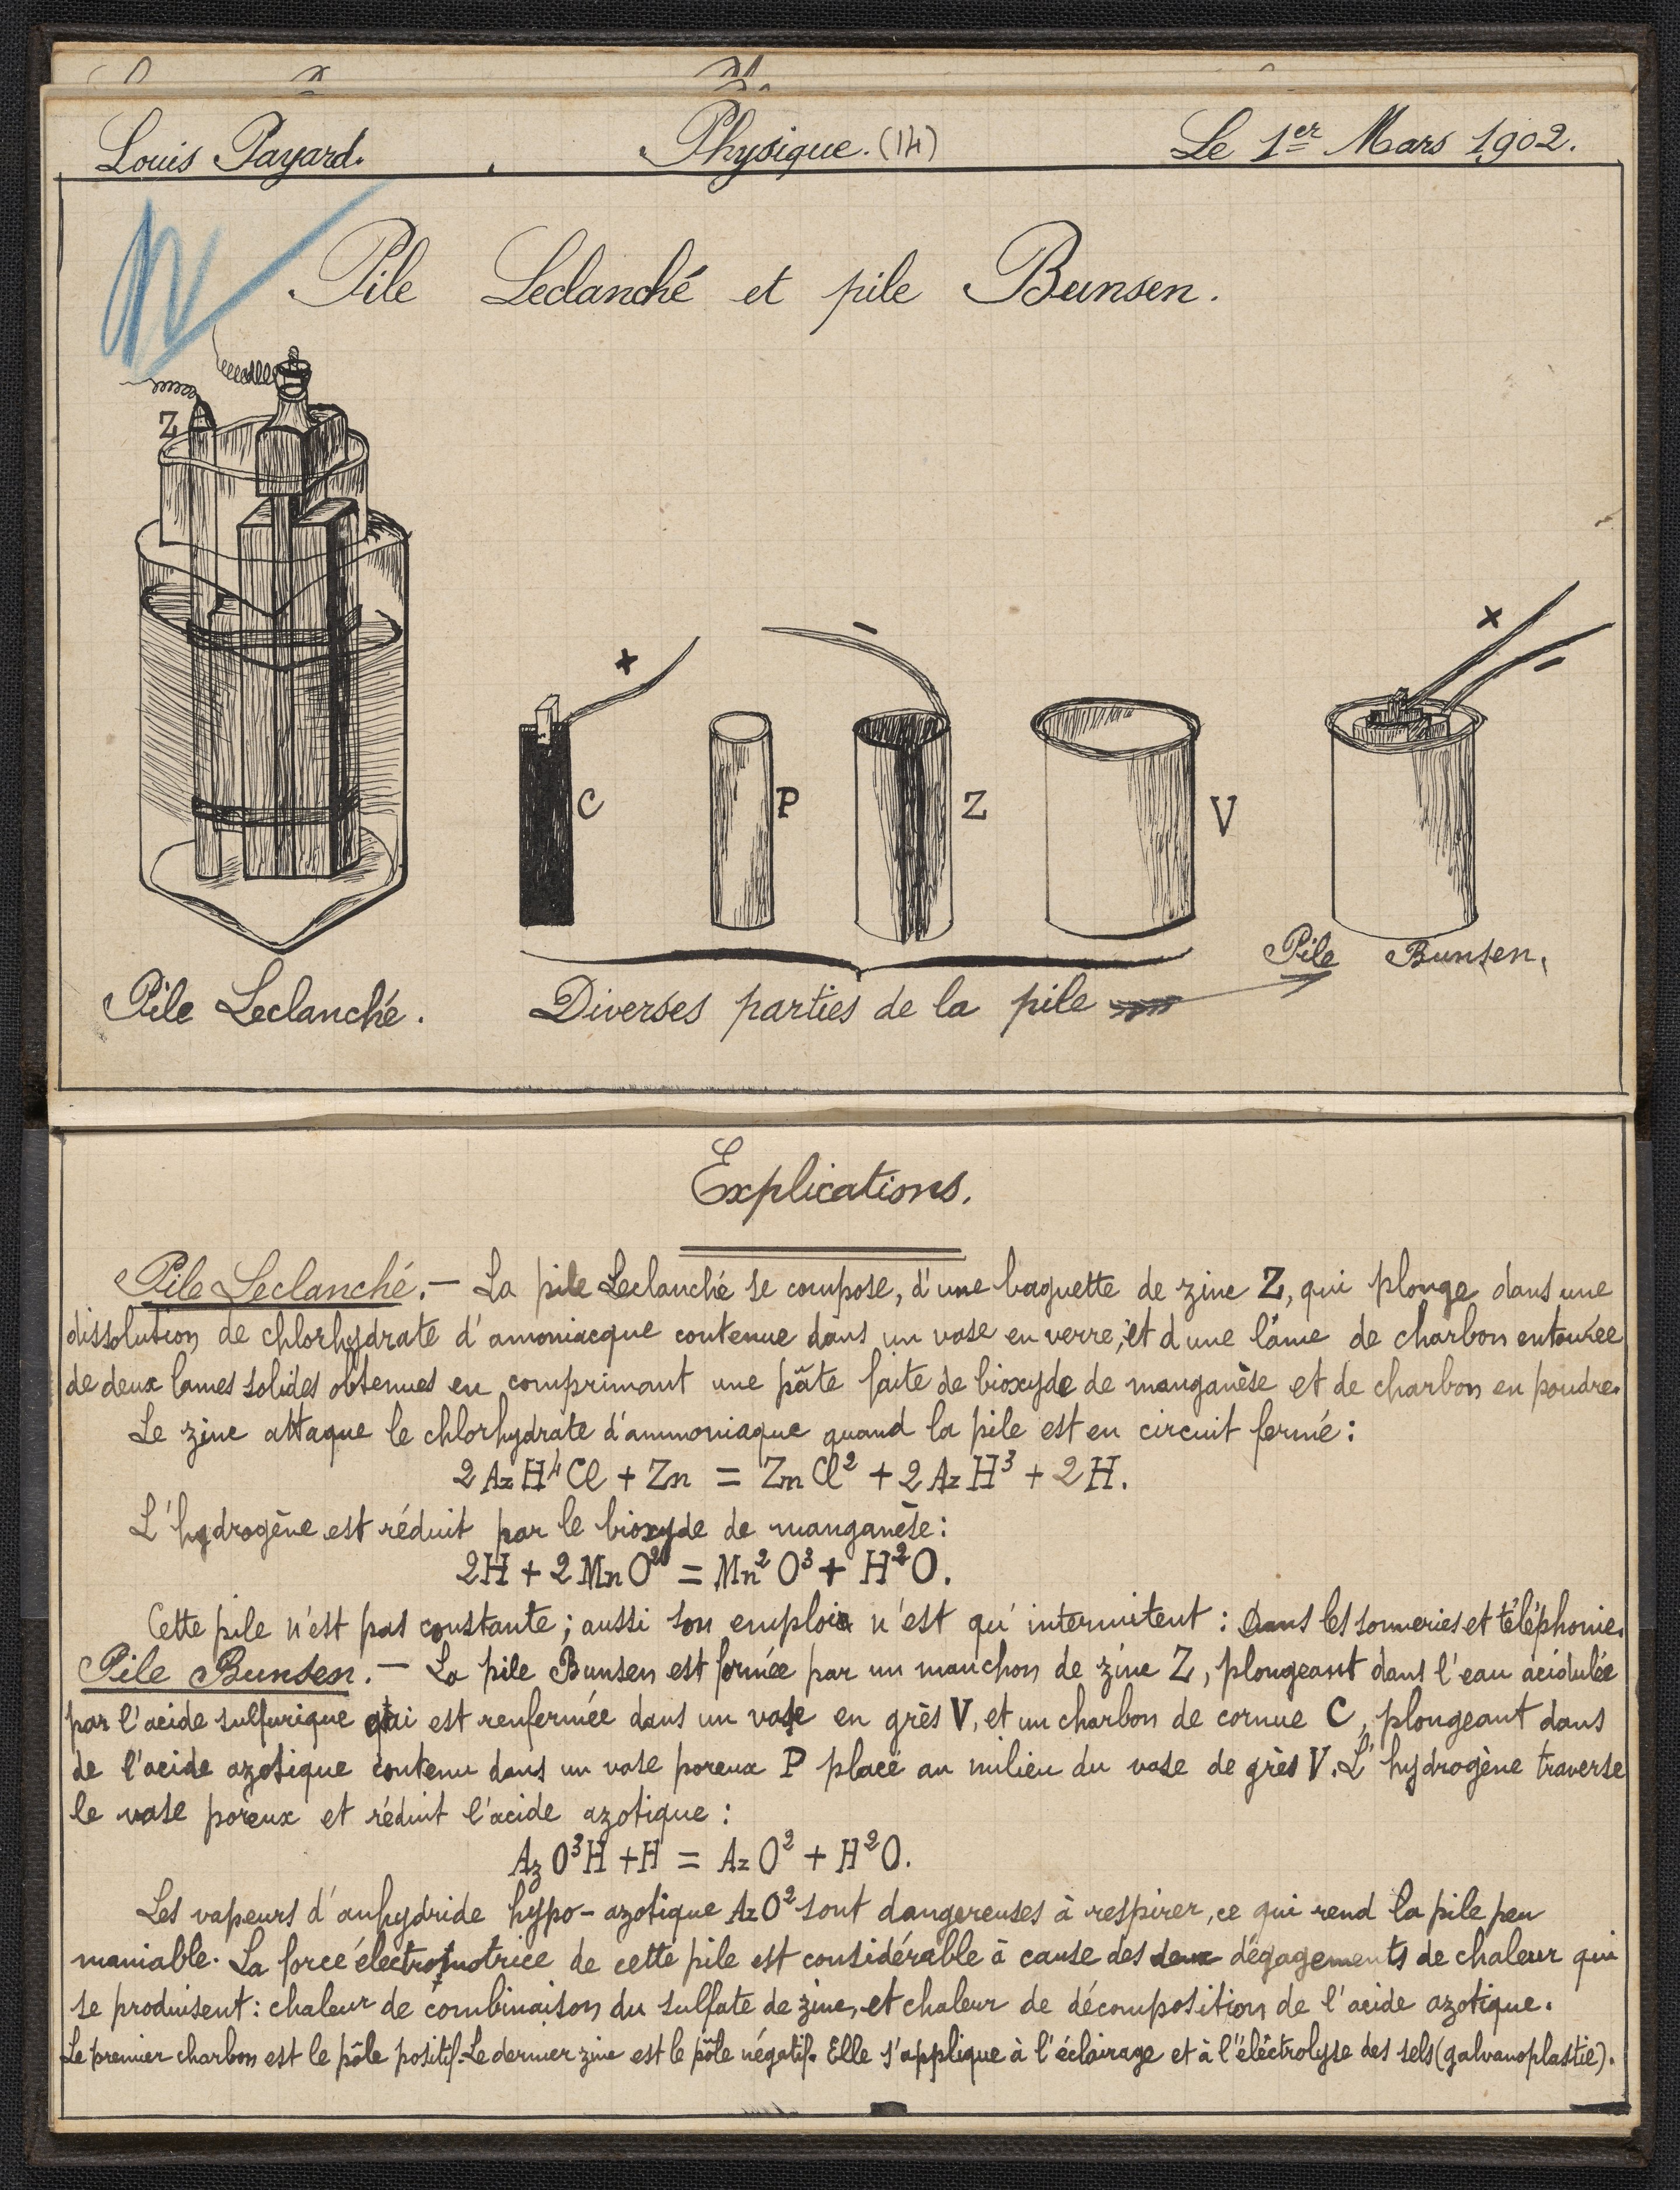 Louis Payard. Physique. (14) Le 1er Mars 1902.
Pile Leclanché et pile Bunsen.
Z
+
−
+
−
C
P
Z
V
Pile Bunsen.
Pile Leclanché.
Diverses parties de la pile
Explications.
Pile Leclanché. — La pile Leclanché se compose, d'une baguette de zinc Z, qui plonge dans une
dissolution de chlorhydrate d'amoniacque contenue dans un vase en verre, et d'une lâme de charbon entourée
de deux lames solides obtenues en comprimant une pâte faite de bioxyde de manganèse et de charbon en poudre.
Le zinc attaque le chlorhydrate d'ammoniaque quand la pile est en circuit fermé :
2 Az H⁴ Cl + Zn = Zn Cl² + 2 Az H³ + 2 H.
L'hydrogène est réduit par le bioxyde de manganèse :
2H + 2 Mn O² = Mn² O³ + H² O.
Cette pile n'est pas constante ; aussi son emploi n'est qu'intermitent : Dans les sonneries et téléphonie.
Pile Bunsen. — La pile Bunsen est formée par un manchon de zinc Z, plongeant dans l'eau acidulée
par l'acide sulfurique qui est renfermée dans un vase en grès V, et un charbon de cornue C, plongeant dans
de l'acide azotique contenu dans un vase poreux P placé au milieu du vase de grès V. L'hydrogène traverse
le vase poreux et réduit l'acide azotique :
Az O³ H + H = Az O² + H² O.
Les vapeurs d'anhydride hypo-azotique Az O² sont dangereuses à respirer, ce qui rend la pile peu
maniable. La force électromotrice de cette pile est considérable à cause des deux dégagements de chaleur qui
se produisent : chaleur de combinaison du sulfate de zinc, et chaleur de décomposition de l'acide azotique.
Le premier charbon est le pôle positif. Le dernier zinc est le pôle négatif. Elle s'applique à l'éclairage et à l'éléctrolyse des sels (galvanoplastie).